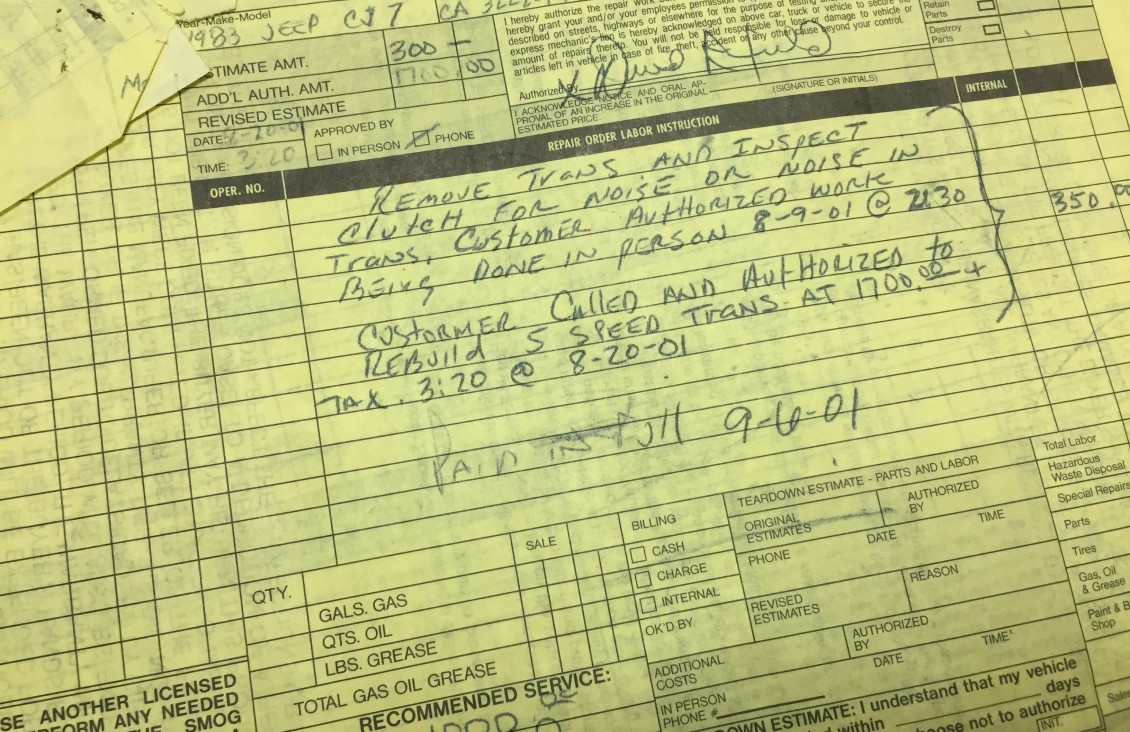 Year-Make-Model
1983 JEEP CJ7
CA
I hereby authorize the repair work
hereby grant your and/or your employees permission
described on streets, highways or elsewhere for the purpose of testing
express mechanic's lien is hereby acknowledged on above car, truck or vehicle to secure the
amount of repairs thereto. You will not be held responsible for loss or damage to vehicle or
articles left in vehicle in case of fire, theft, accident or any other cause beyond your control.
Retain
Parts
Destroy
Parts
ESTIMATE AMT. 300 —
ADD'L AUTH. AMT. 1700.00
REVISED ESTIMATE
Authorized By X
(SIGNATURE OR INITIALS)
I ACKNOWLEDGE NOTICE AND ORAL AP-
PROVAL OF AN INCREASE IN THE ORIGINAL
ESTIMATE PRICE.
DATE: 8-20-01
APPROVED BY
IN PERSON PHONE
TIME: 3:20
OPER. NO.
REPAIR ORDER LABOR INSTRUCTION
INTERNAL
REMOVE TRANS AND INSPECT
ClutcH FOR NOISE OR NOISE IN
TRANS, CUSTOMER AUTHORIZED WORK
BEING DONE IN PERSON 8-9-01 @ 2130
350.00
CUSTORMER CAlled AND AUTHORIZED to
REBUild 5 SPEED TRANS AT 1700.00 +
TAX. 3:20 @ 8-20-01
PAID IN full 9-6-01
QTY.
SALE
GALS. GAS
QTS. OIL
LBS. GREASE
TOTAL GAS OIL GREASE
BILLING
CASH
CHARGE
INTERNAL
OK'D BY
TEARDOWN ESTIMATE - PARTS AND LABOR
ORIGINAL
ESTIMATES
AUTHORIZED
BY
PHONE
DATE
TIME
REVISED
ESTIMATES
REASON
ADDITIONAL
COSTS
AUTHORIZED
BY
IN PERSON
PHONE #
DATE
TIME
Total Labor
Hazardous
Waste Disposal
Special Repairs
Parts
Tires
Gas, Oil
& Grease
Paint & B
Shop
RECOMMENDED SERVICE:
DOWN ESTIMATE: I understand that my vehicle
within days
choose not to authorize
INIT.
SE ANOTHER LICENSED
FORM ANY NEEDED
THE SMOG